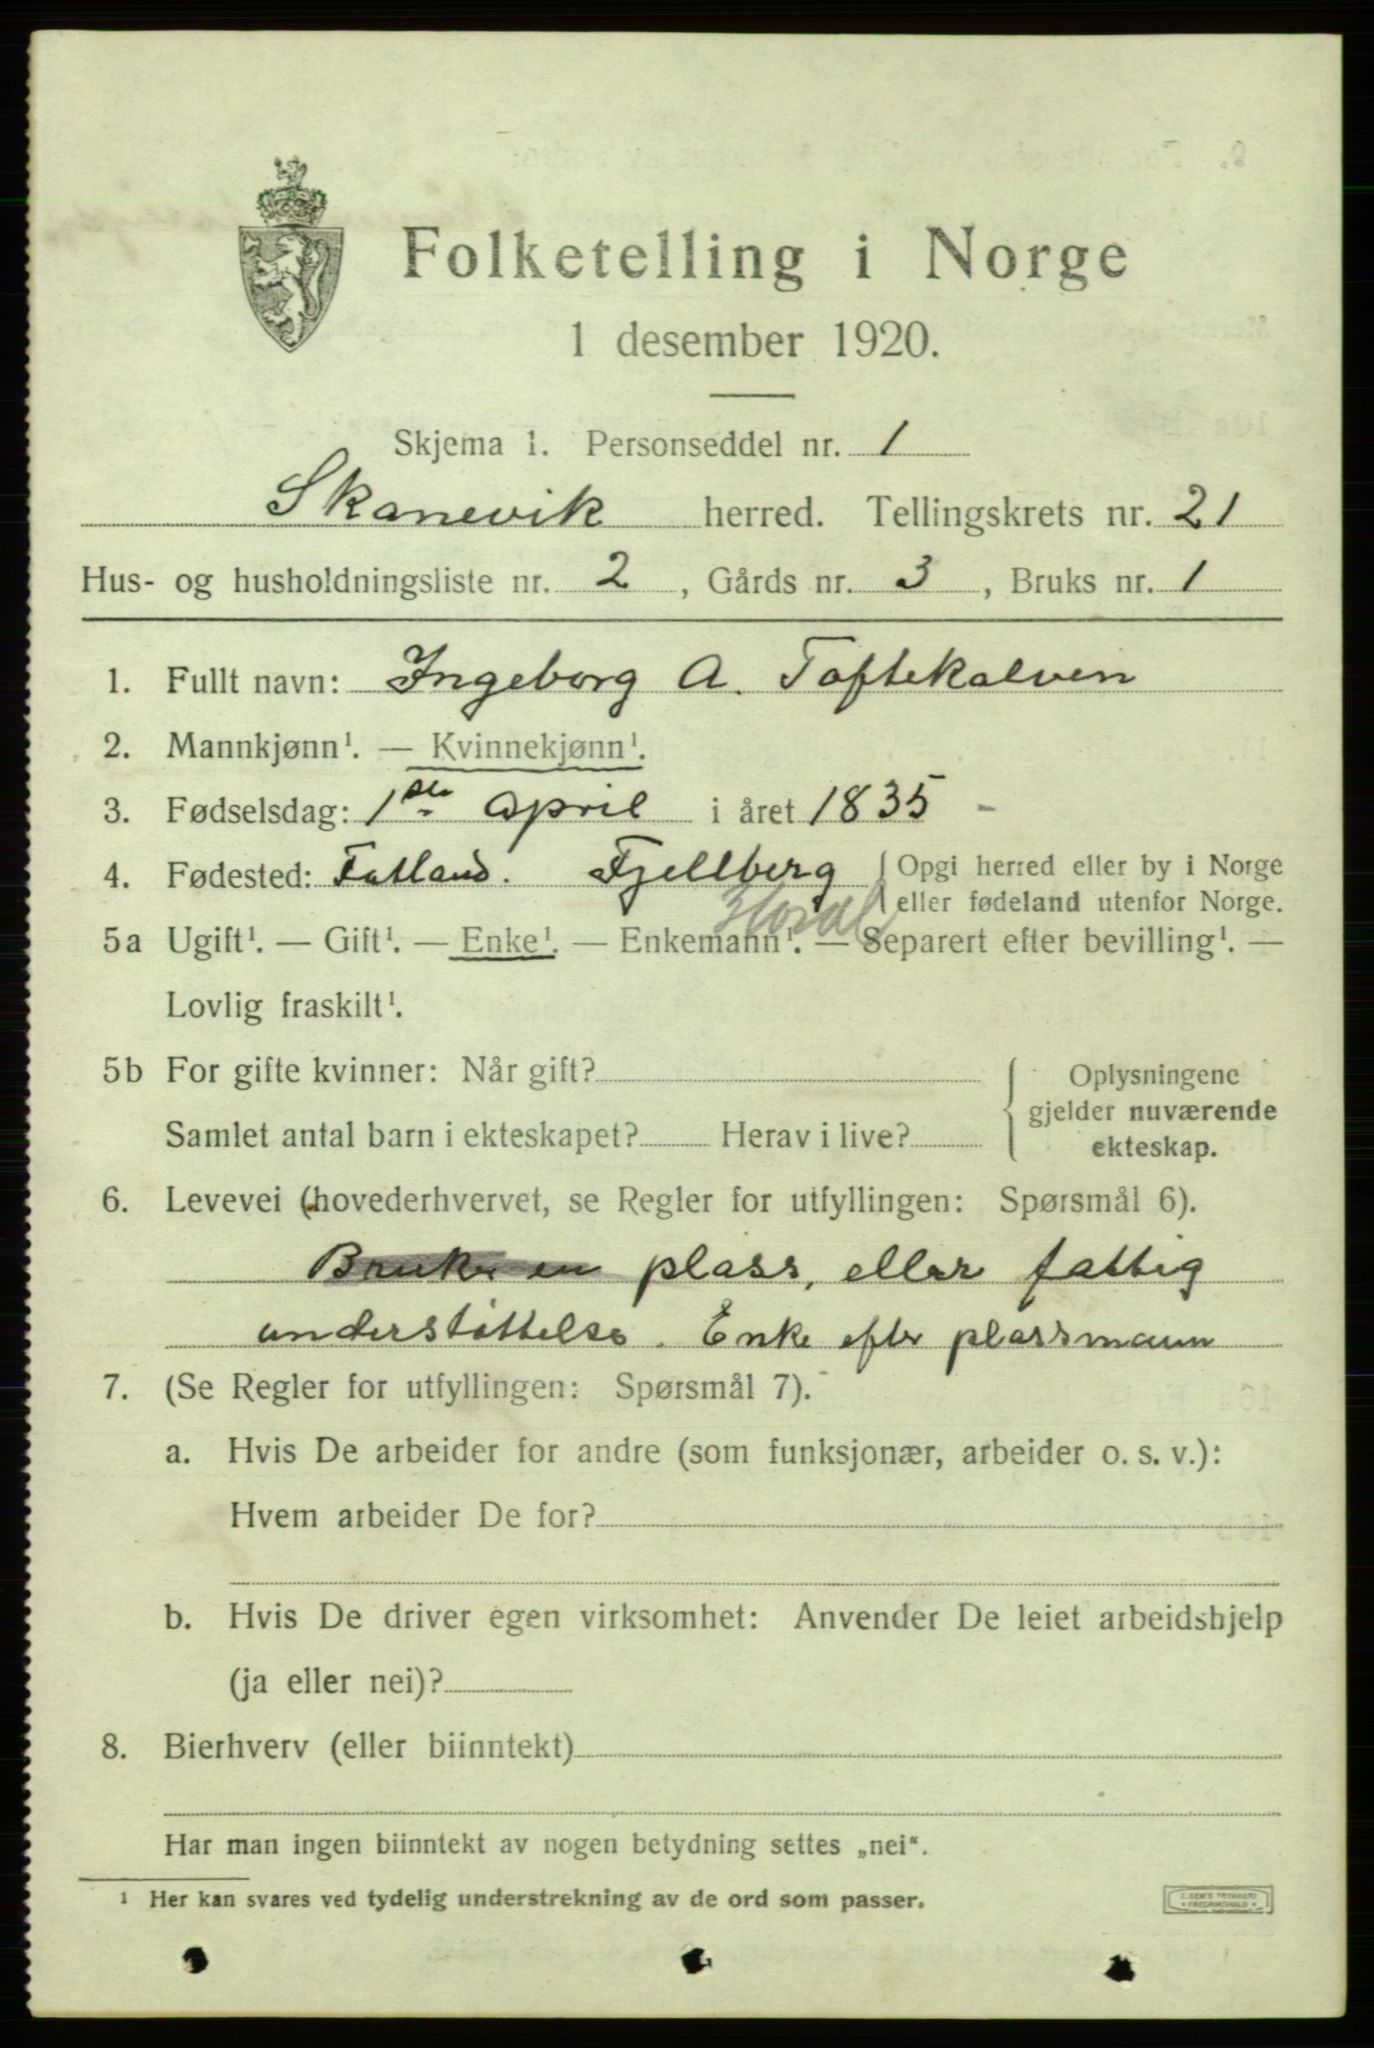 Folketelling i Norge
1 desember 1920.
Skjema 1. Personseddel nr. 1
Skanevik herred. Tellingskrets nr. 21
Hus- og husholdningsliste nr. 2, Gårds nr. 3, Bruks nr. 1
1. Fullt navn: Ingeborg A. Toftekalven
2. Mannkjønn¹. — Kvinnekjønn¹.
3. Fødselsdag: 1ste april i året 1835 -
4. Fødested: Fatland. Fjellberg {Opgi herred eller by i Norge
eller fødeland utenfor Norge.
5a Ugift¹. — Gift¹. — Enke¹. — Enkemann¹. — Separert efter bevilling¹. —
Lovlig fraskilt¹.
5b For gifte kvinner: Når gift?
Samlet antal barn i ekteskapet? Herav i live?
Oplysningene
gjelder nuværende
ekteskap.
6. Levevei (hovederhvervet, se Regler for utfyllingen: Spørsmål 6).
Bruker en plass, eller fattig
understøttelse. Enke efter plassmann
7. (Se Regler for utfyllingen: Spørsmål 7).
a. Hvis De arbeider for andre (som funksjonær, arbeider o. s. v.):
Hvem arbeider De for?
b. Hvis De driver egen virksomhet: Anvender De leiet arbeidshjelp
(ja eller nei)?
8. Bierhverv (eller biinntekt)
Har man ingen biinntekt av nogen betydning settes „nei“.
¹ Her kan svares ved tydelig understrekning av de ord som passer.